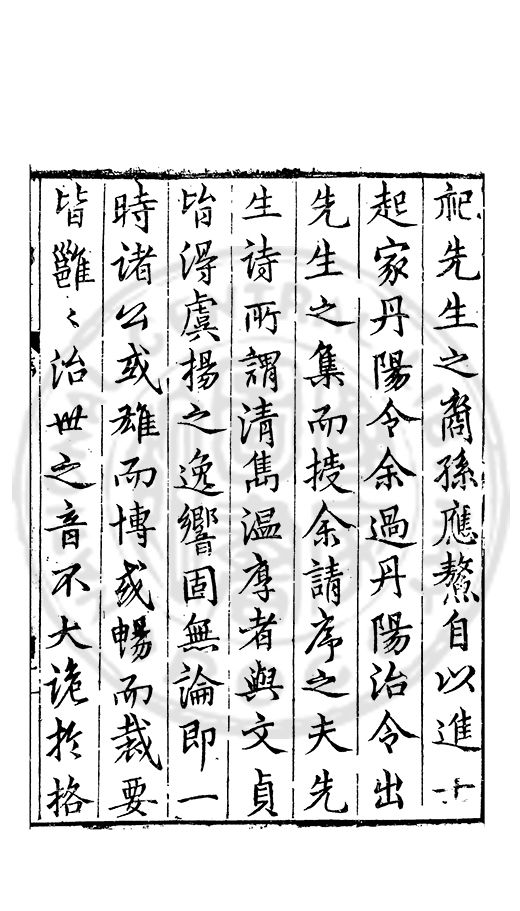 祀先生之裔孫應鰲自以進士
起家丹陽令余過丹陽治令出
先生之集而授余請序之夫先
生詩所謂清雋溫厚者與文貞
皆得虞揚之逸響固無論即一
時諸公或雄而博或暢而裁要
皆雝〻治世之音不大詭於格